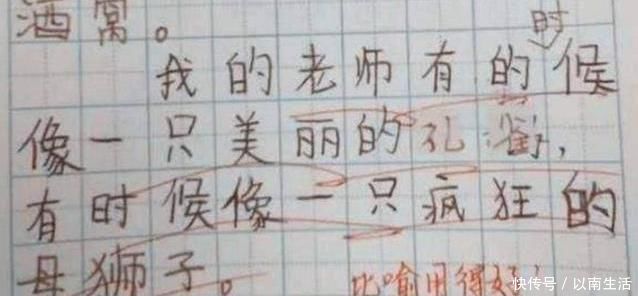 酒窝。
我的老师有的时候
像一只美丽的孔雀,
有时候像一只疯狂的
母狮子。
比喻用得好
快传号 / 以南生活